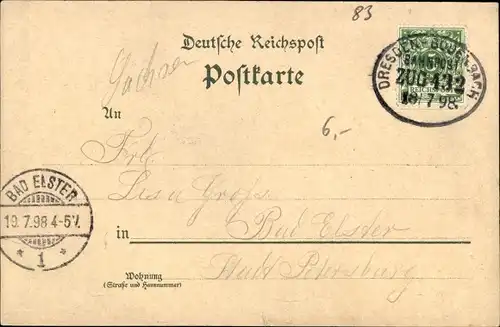 83
Deutsche Reichspost
Postkarte
Sachsen
DRESDEN-BODENBACH
BAHNPOST
ZUG 432
18/7 98
An
6,-
Frl.
Lisa Gross
BAD ELSTER
19.7.98 4-5N.
* 1 *
in Bad Elster
Stadt Petersburg
Wohnung
(Straße und Hausnummer)